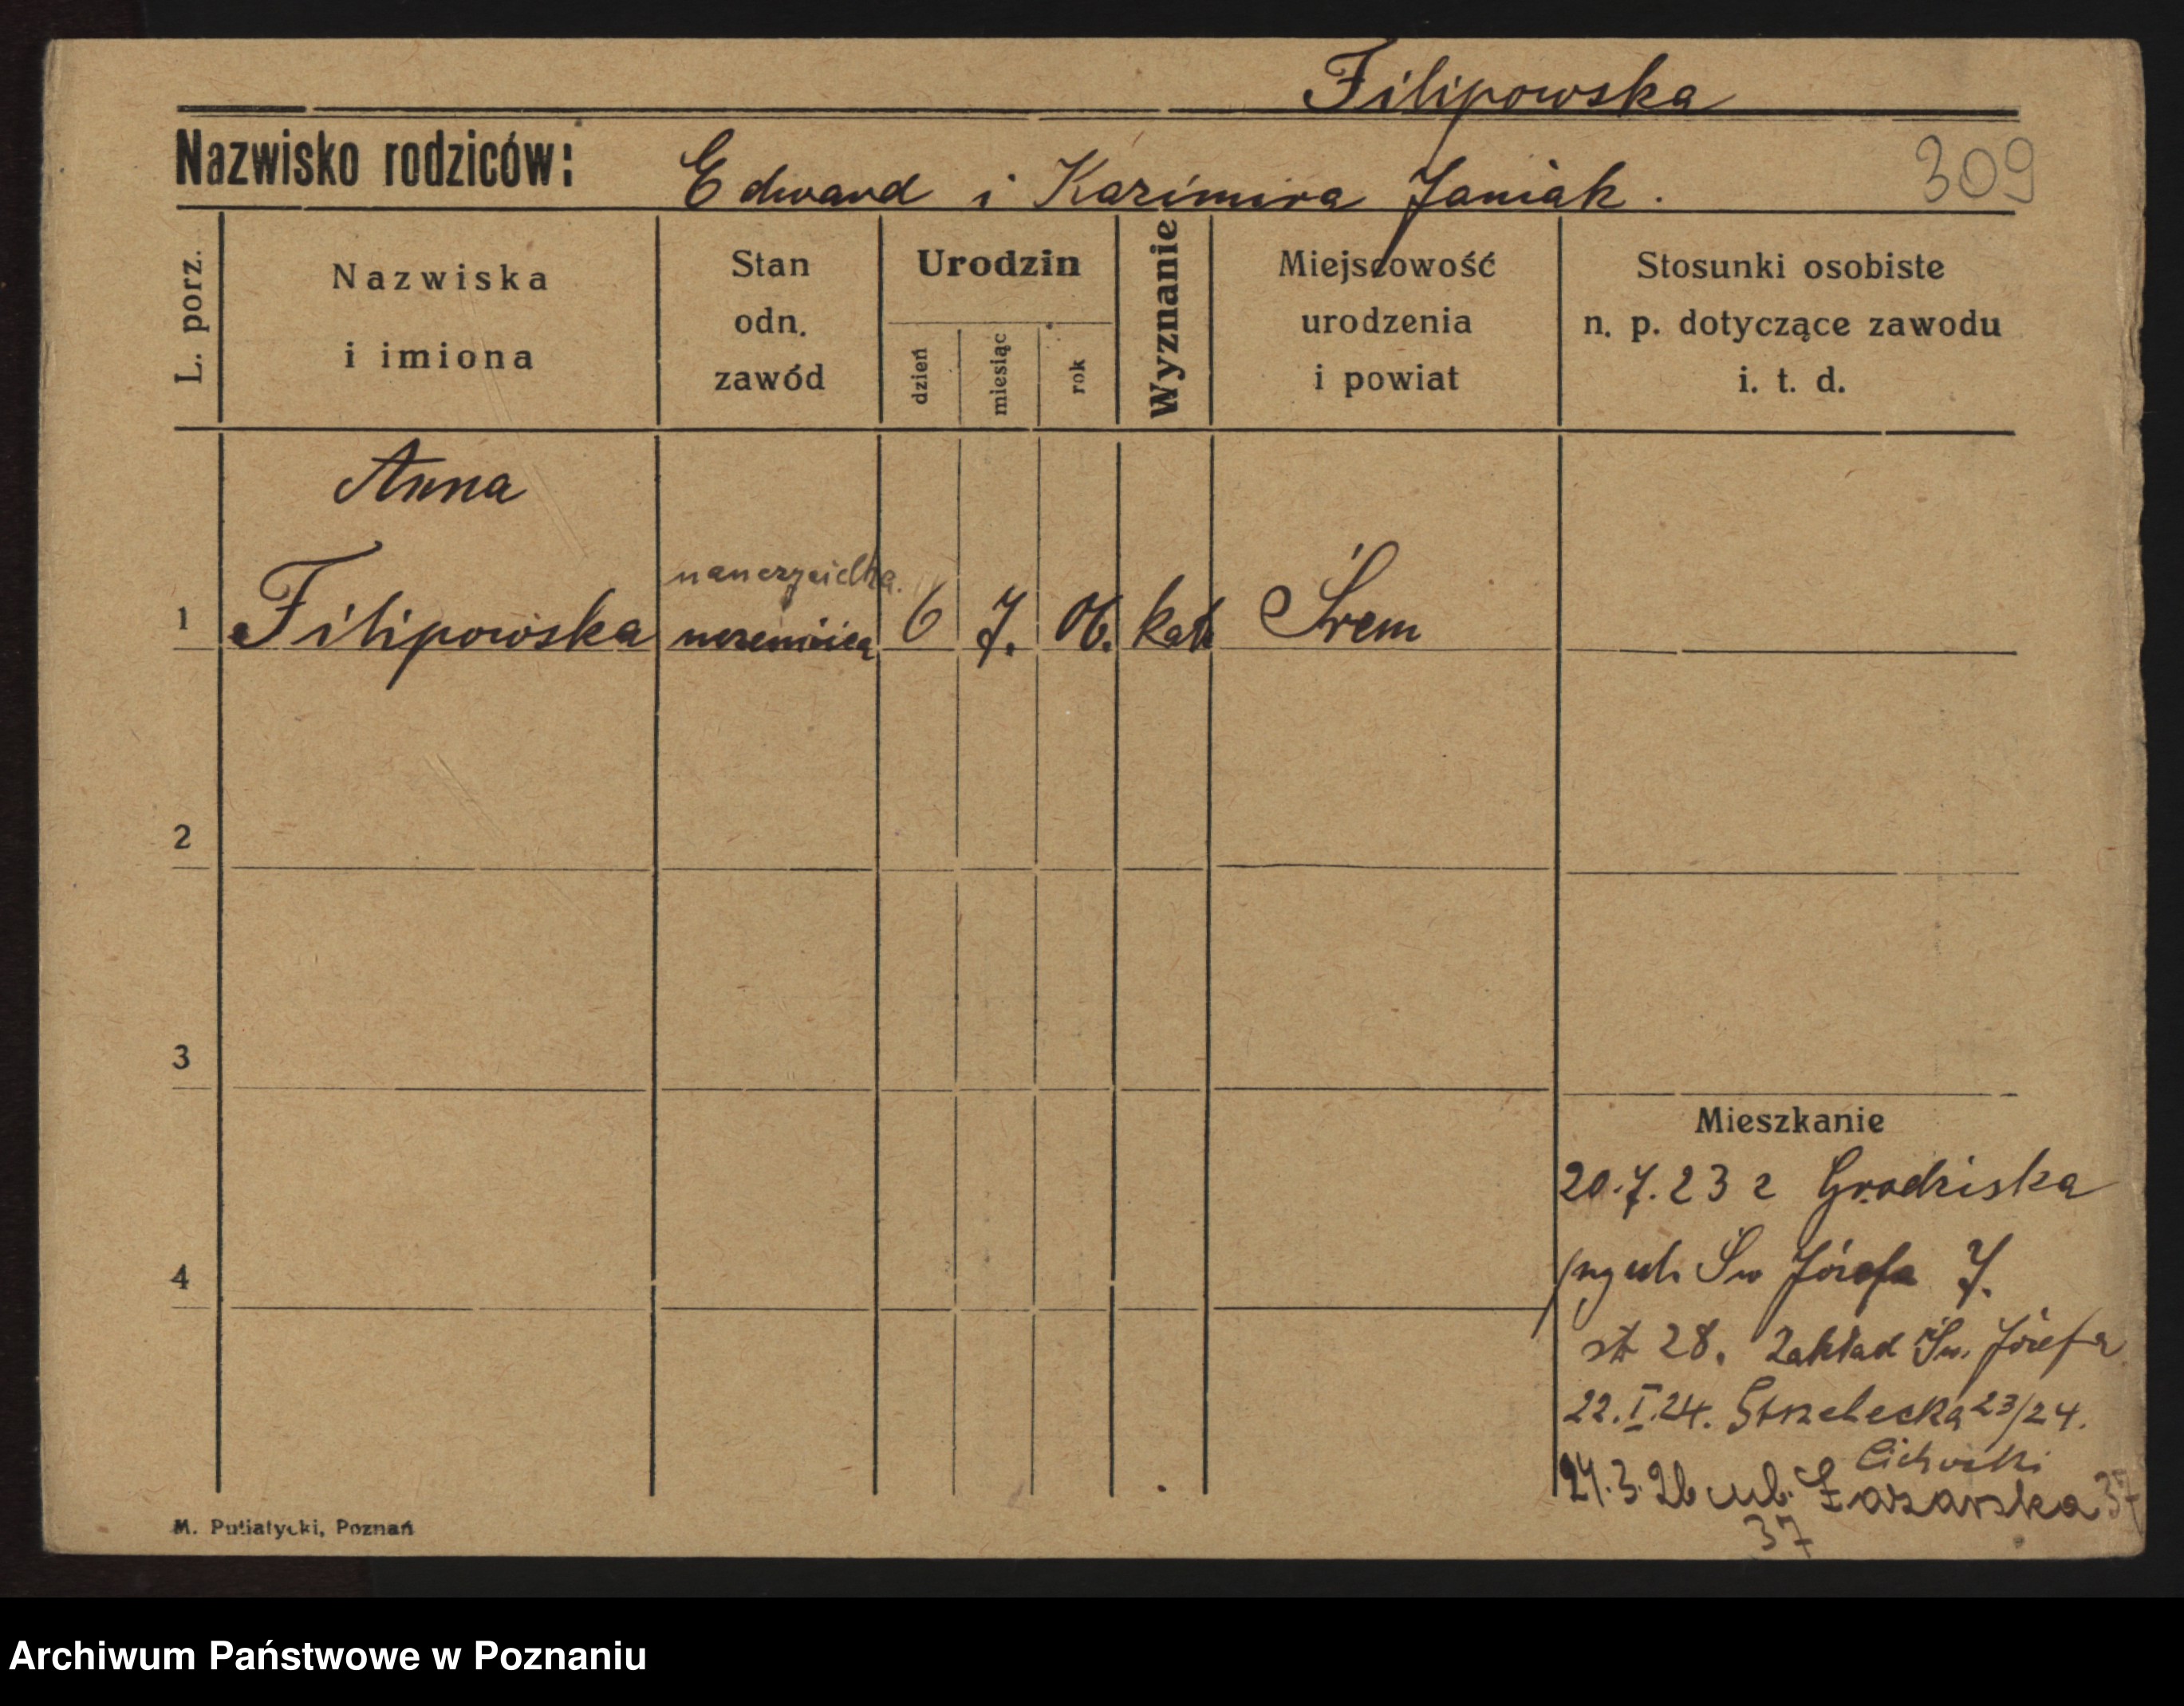 Filipowska
309
Nazwisko rodziców: Edward i Kazimira Janiak.
L. porz.
Nazwiska i imiona
Stan odn. zawód
Urodzin
dzień
miesiąc
rok
Wyznanie
Miejscowość urodzenia i powiat
Stosunki osobiste n. p. dotyczące zawodu i. t. d.
Anna
nauczycielka.
1 Filipowska uczennica 6 7. 06. kath Śrem
2
3
Mieszkanie
20.7.23 z Grodziska
4
Św Józefa 7.
28. Zakład Św. Józefa
22.I.24. Strzelecka 23/24.
Cichocki
24.3.26 ul. Łazarska 37
37
M. Putiatycki, Poznań
Archiwum Państwowe w Poznaniu